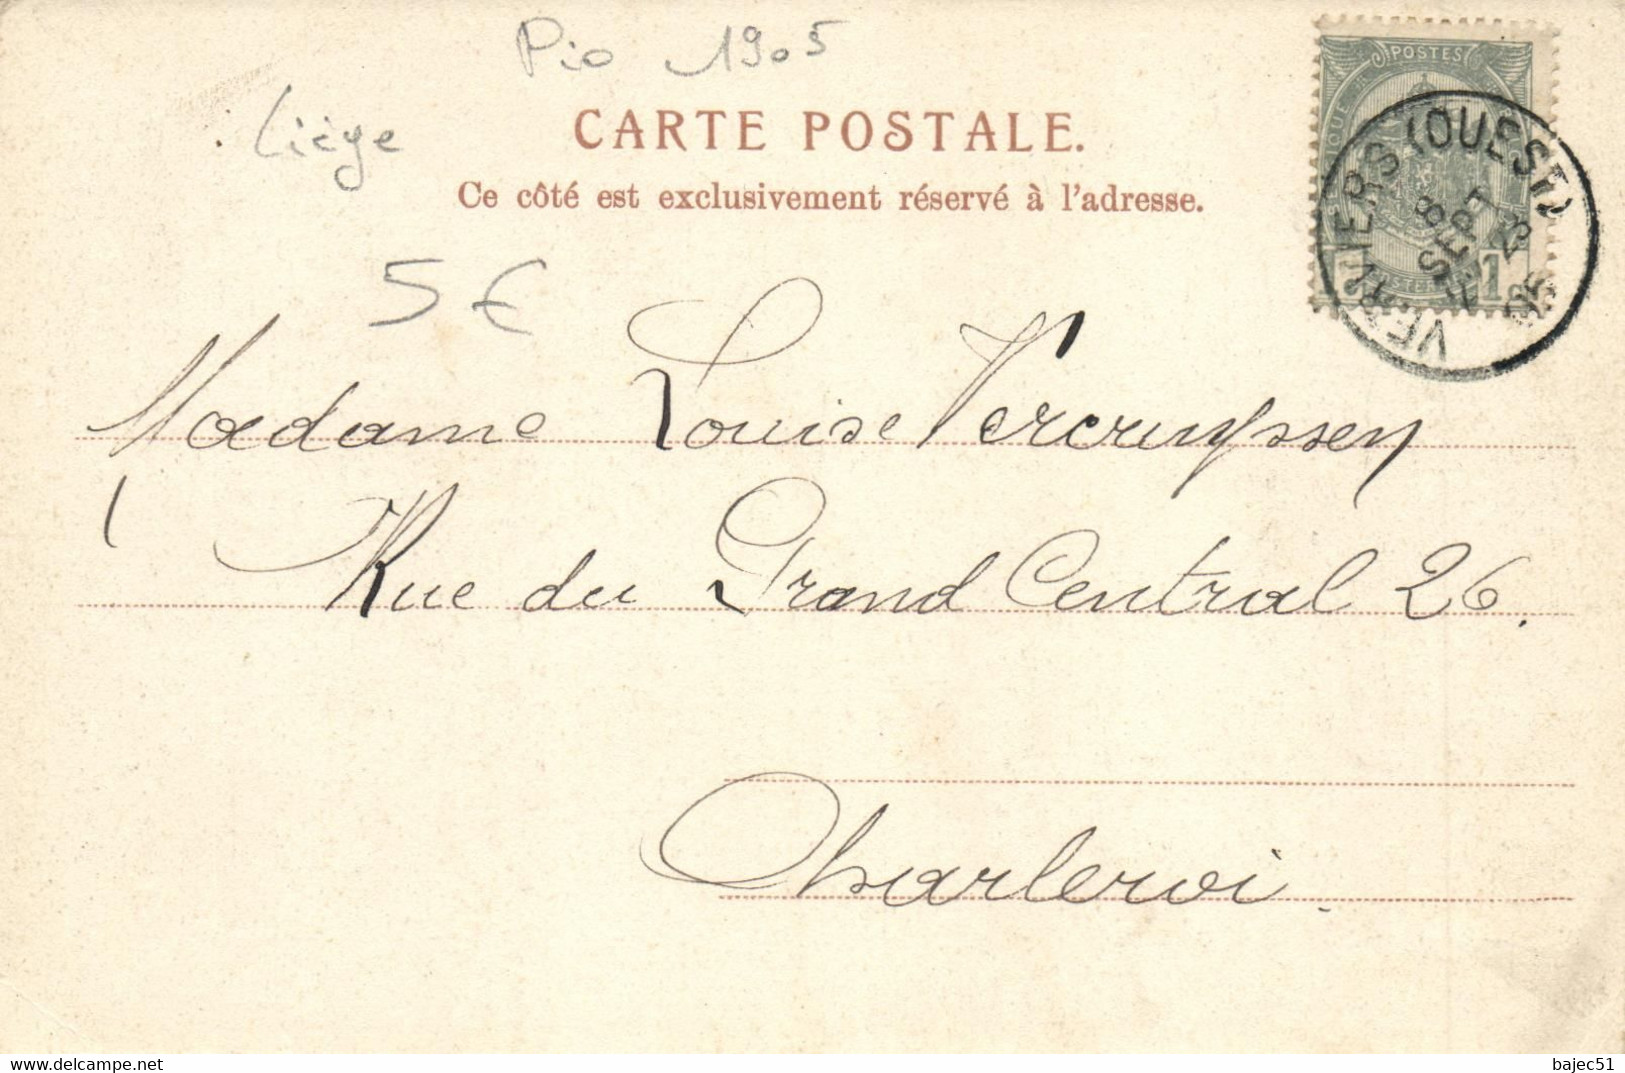 Pio 1905
Liège
CARTE POSTALE.
Ce côté est exclusivement réservé à l'adresse.
5 €
POSTES
1
VERVIERS (OUEST)
8
SEPT
23
05
Madame Louise Vercruyssen
Rue du Grand Central 26.
Charleroi.
www.delcampe.net
bajec51